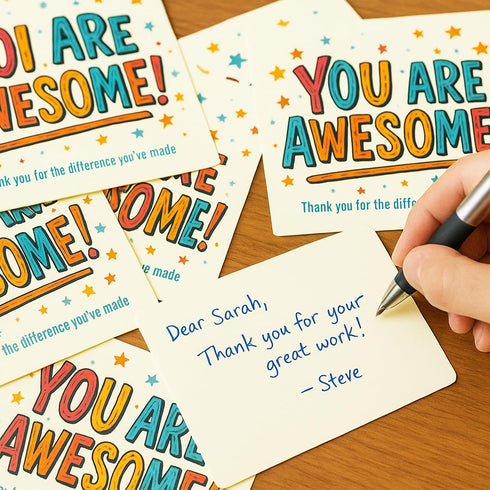 OI ARE
WESOME!
nk you for the difference you've made
YOU ARE
AWESOME
Thank you for the diff
RE
SOME!
made
SOME!
the difference you've made
Dear Sarah,
Thank you for your
great work!
– Steve
YOU ARE
AWESOME